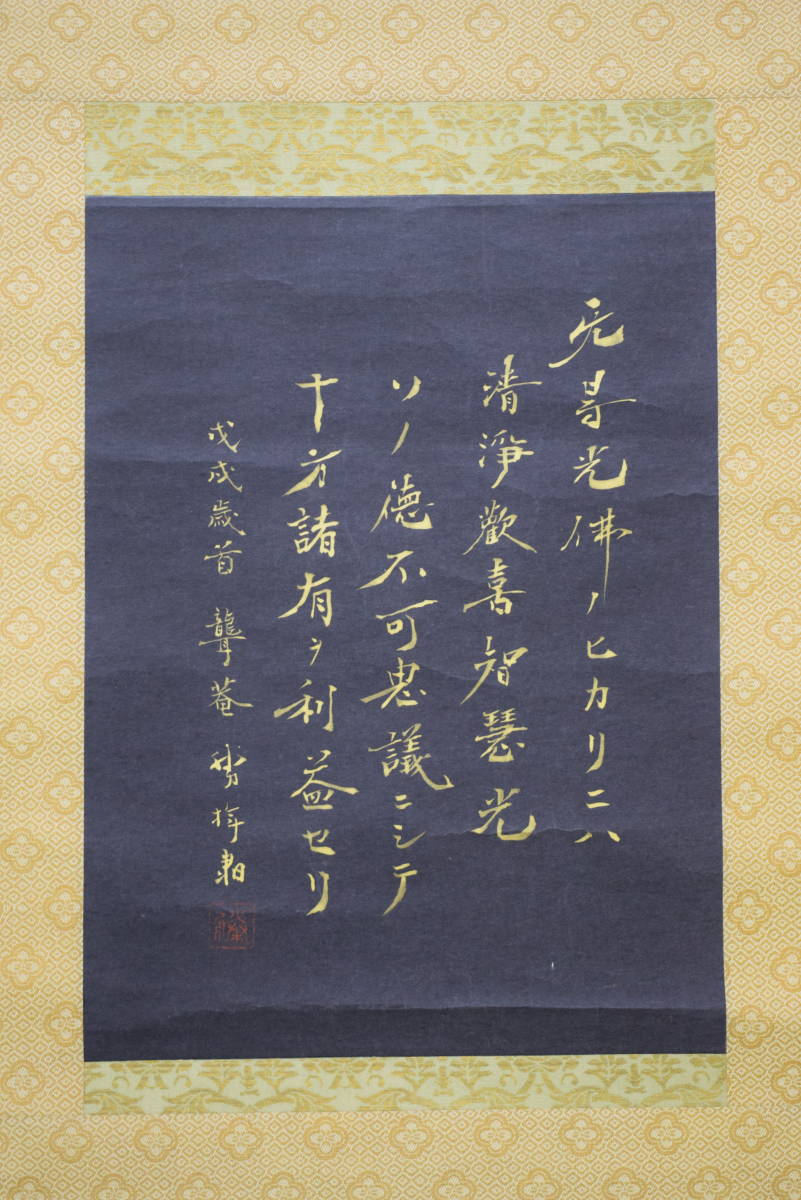 无㝵光佛ノヒカリニハ
清淨歡喜智慧光
ソノ德不可思議ニシテ
十方諸有ヲ利益セリ
戊戌歳首 聾菴